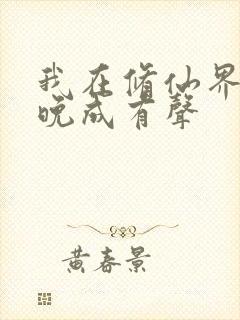 我在脩仙界
晚成有聲
黄春景